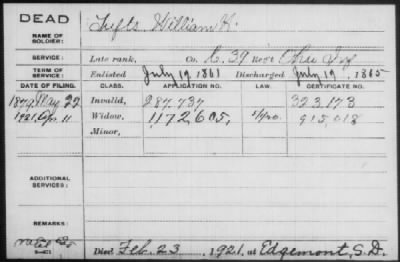 DEAD
NAME OF SOLDIER: Tufts, William H.
SERVICE: Late rank, Co. C. 39 Reg't Ohio Inf
TERM OF SERVICE: Enlisted July 19 1861 Discharged July 19, 1865
DATE OF FILING. CLASS. APPLICATION NO. LAW. CERTIFICATE NO.
1879 May 22 Invalid, 287,737 323,173
1921, Apr. 11 Widow, 1172,605, 915,018
Minor,
ADDITIONAL SERVICES:
REMARKS:
Died Feb. 23, 1921, at Edgemont, S.D.